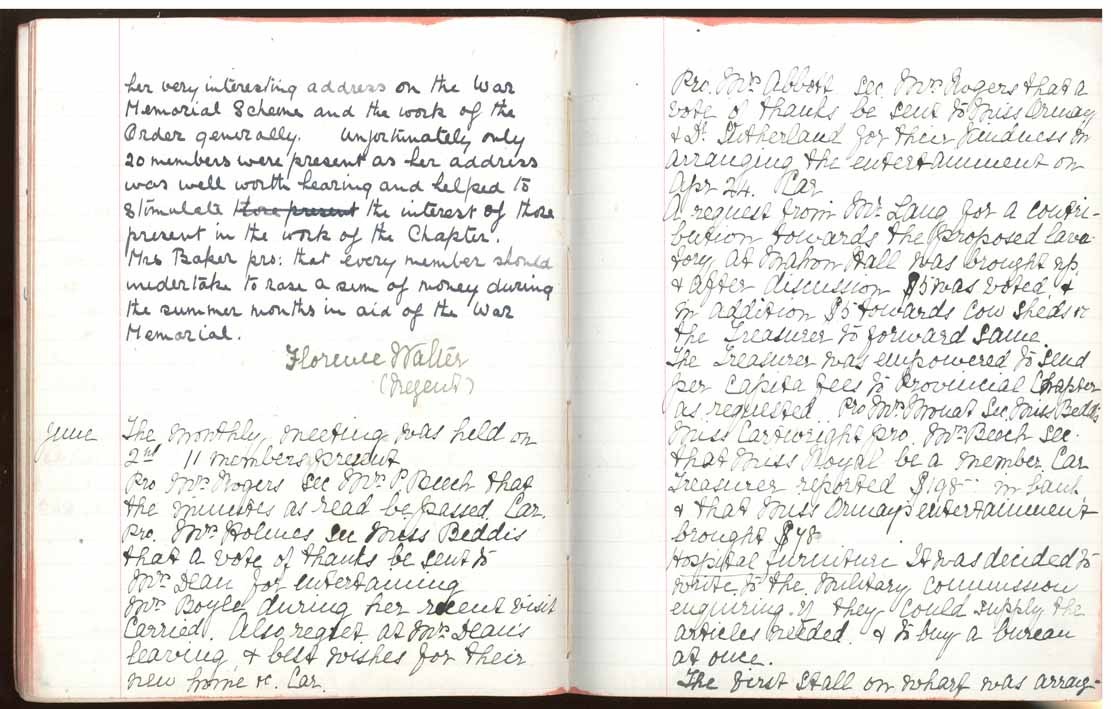 her very interesting address on the War
Memorial Scheme and the work of the
Order generally. Unfortunately only
20 members were present as her address
was well worth hearing and helped to
stimulate those present the interest of those
present in the work of the Chapter.
Mrs Baker pro: that every member should
undertake to rase a sum of money during
the summer months in aid of the War
Memorial.
Florence Walter
(Regent)
June
The monthly meeting was held on
2nd 11 members present
Pro Mrs Rogers Sec Mrs P Beech that
the minutes as read be passed. Car.
Pro. Mrs Holmes Sec Miss Beddis
that a vote of thanks be sent to
Mrs Dean for entertaining
Mrs Boyle during her recent visit
Carried. Also regret at Mrs Dean's
leaving & best wishes for their
new home &c. Car.
Pro. Mrs Abbott Sec. Mrs Rogers that a
vote of thanks be sent to Miss Ormay
& Dr. Sutherland for their kindness in
arranging the entertainment on
Apr 24. Car
A request from Mr Lang for a contri-
bution towards the proposed lava-
tory at Mahon Hall was brought up
& after discussion $5 was voted &
in addition $5 towards Cow Sheds
the Treasurer to forward same.
The Treasurer was empowered to send
per capita fees to Provincial Chapter
as requested. Pro Mrs Mouat Sec. Miss Beddis
Miss Cartwright pro. Mrs Beech Sec.
that Miss Royal be a member. Car
Treasurer reported $198 in bank
& that Miss Ormay's entertainment
brought $48
Hospital furniture It was decided to
write to the Military Commission
enquiring if they could supply the
articles needed. & to buy a bureau
at once.
The first stall on wharf was arrang-